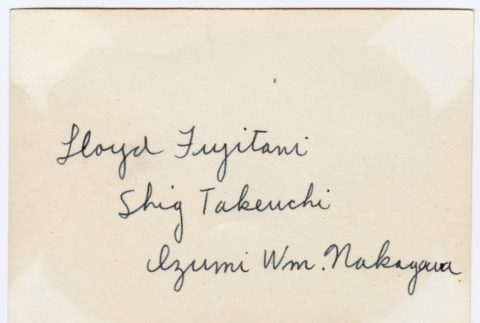 Lloyd Fujitani
Shig Takeuchi
Izumi Wm. Nakagawa